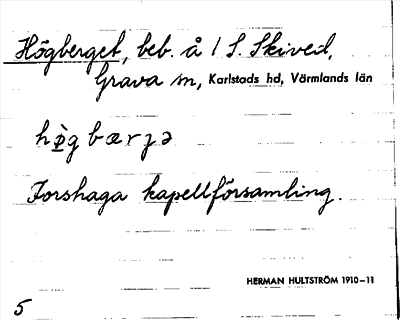 Högberget, beb. å 1 S. Skived,
Grava sn, Karlstads hd, Värmlands län
hø̀gbærjə
Forshaga kapellförsamling.
HERMAN HULTSTRÖM 1910–11
5